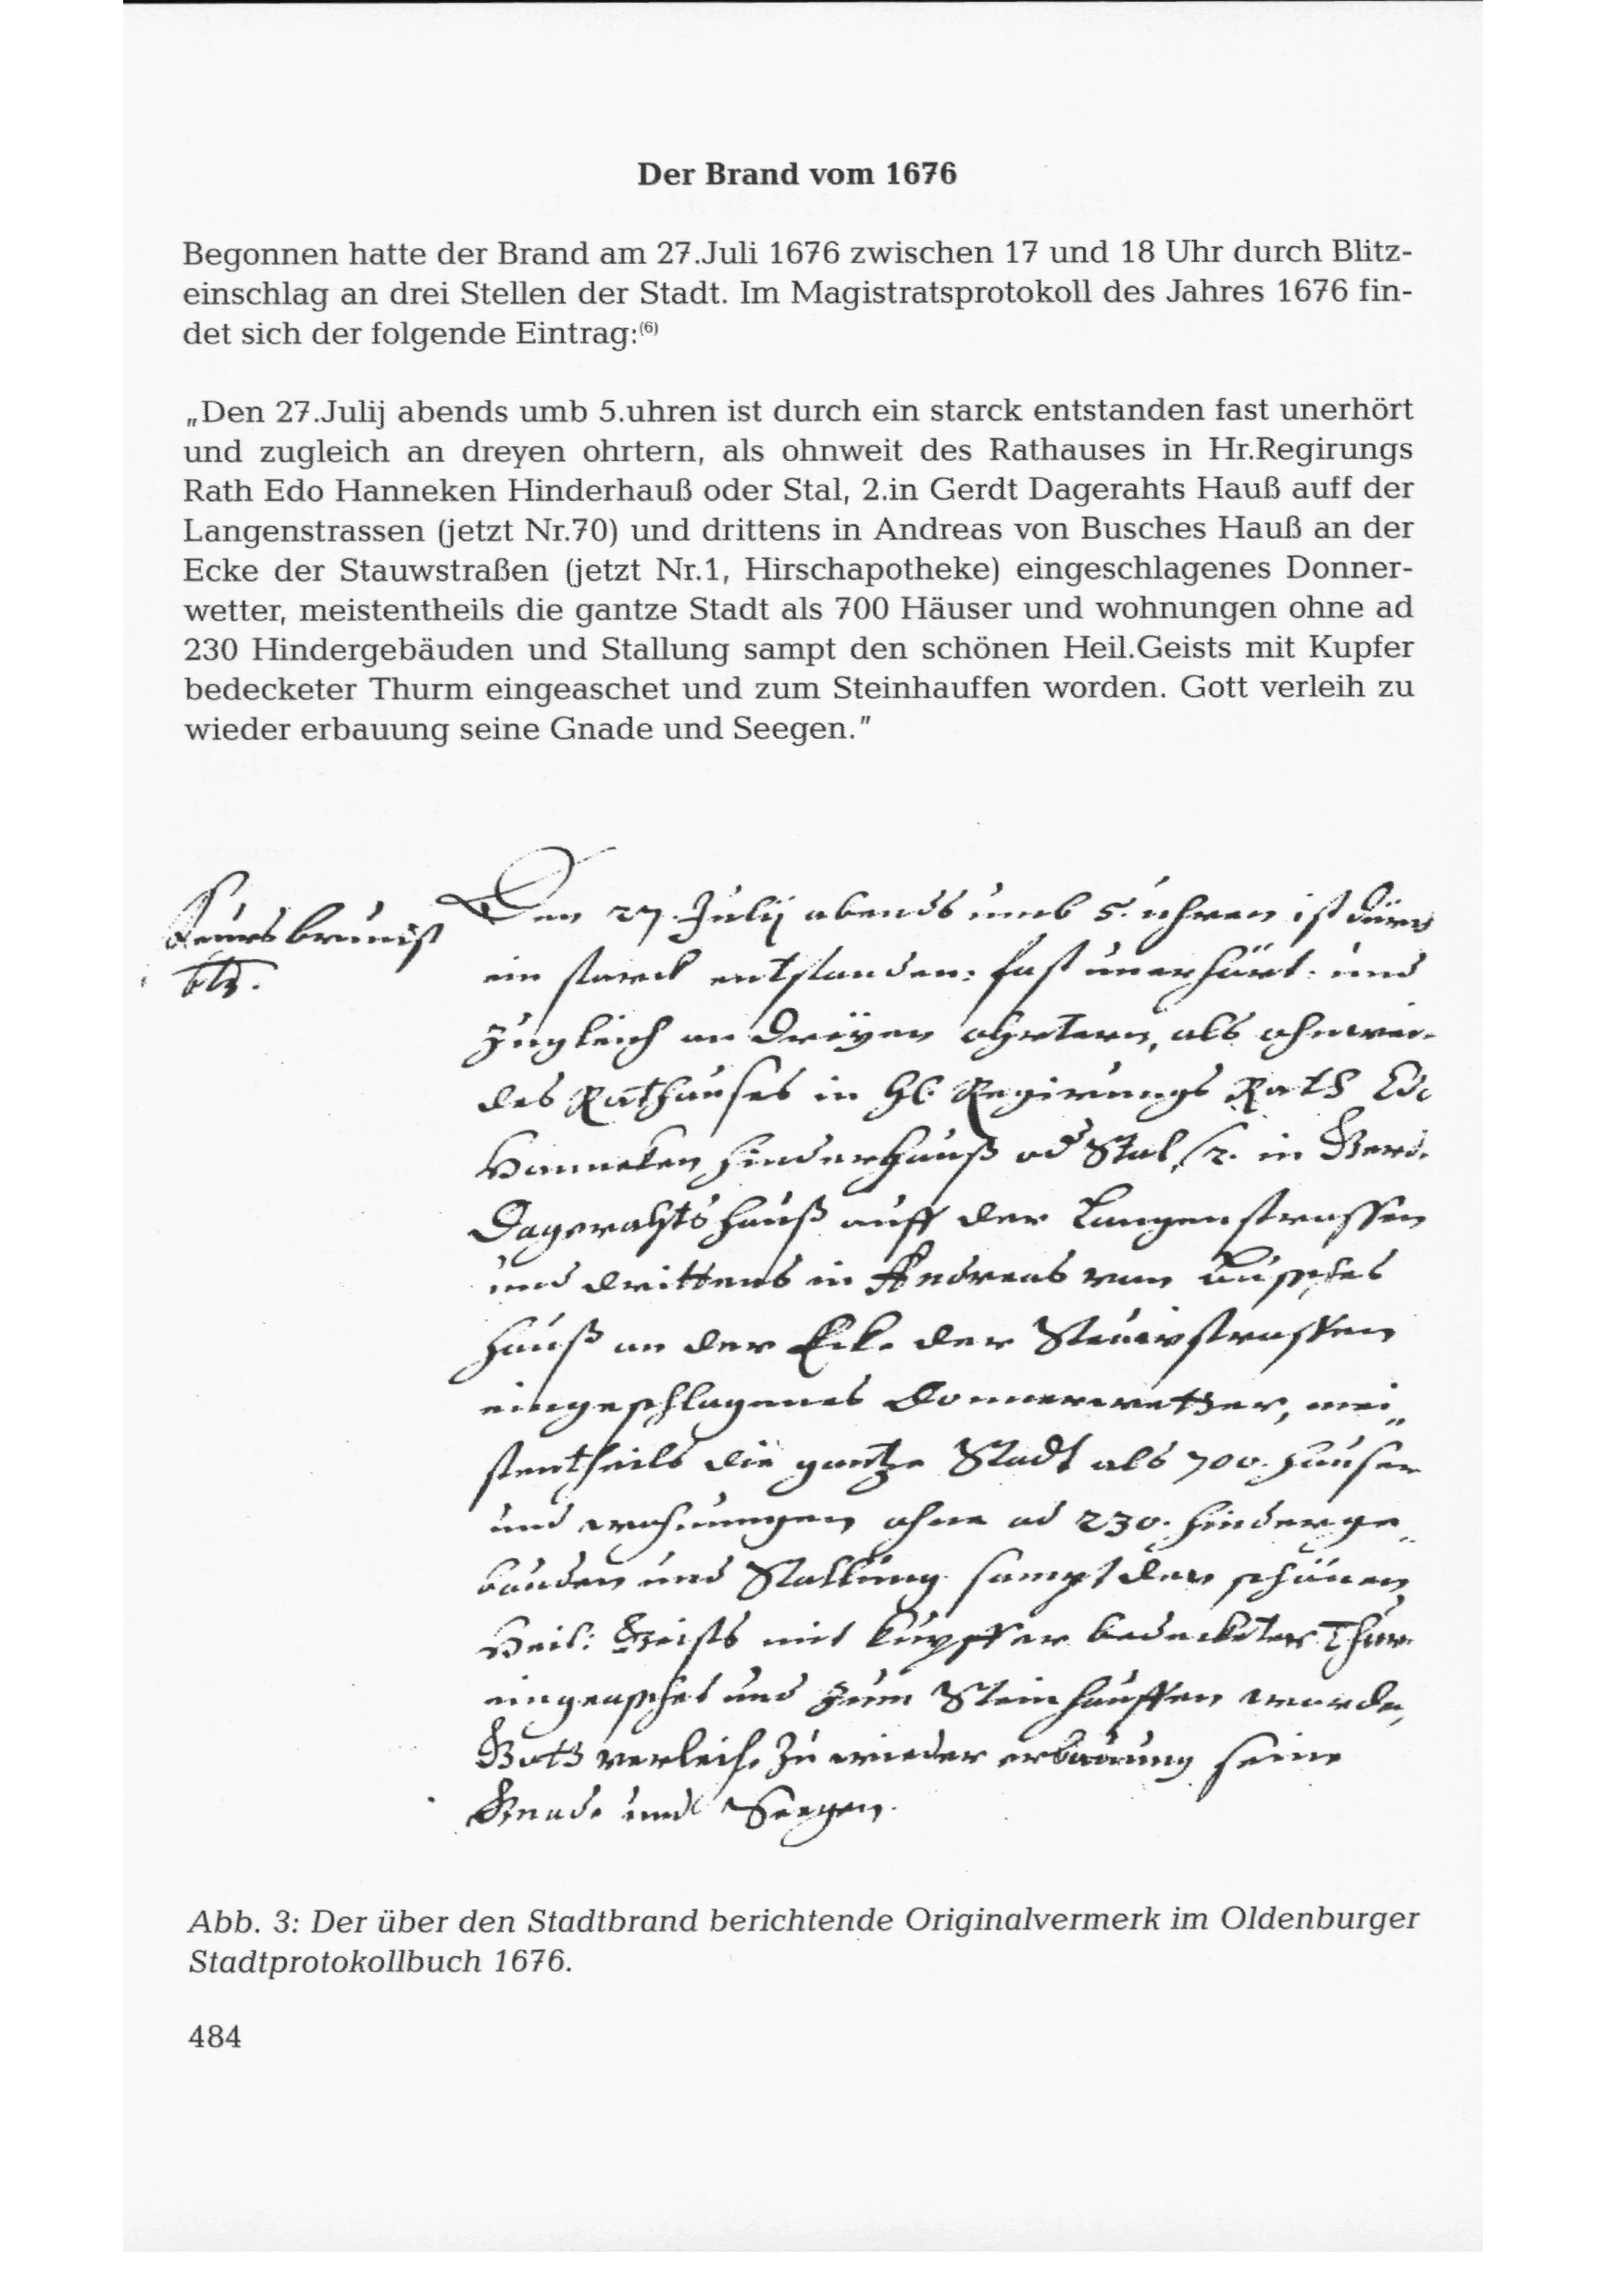 Der Brand vom 1676
Begonnen hatte der Brand am 27.Juli 1676 zwischen 17 und 18 Uhr durch Blitz-
einschlag an drei Stellen der Stadt. Im Magistratsprotokoll des Jahres 1676 fin-
det sich der folgende Eintrag:(6)
„Den 27.Julij abends umb 5.uhren ist durch ein starck entstanden fast unerhört
und zugleich an dreyen ohrtern, als ohnweit des Rathauses in Hr.Regirungs
Rath Edo Hanneken Hinderhauß oder Stal, 2.in Gerdt Dagerahts Hauß auff der
Langenstrassen (jetzt Nr.70) und drittens in Andreas von Busches Hauß an der
Ecke der Stauwstraßen (jetzt Nr.1, Hirschapotheke) eingeschlagenes Donner-
wetter, meistentheils die gantze Stadt als 700 Häuser und wohnungen ohne ad
230 Hindergebäuden und Stallung sampt den schönen Heil.Geists mit Kupfer
bedecketer Thurm eingeaschet und zum Steinhauffen worden. Gott verleih zu
wieder erbauung seine Gnade und Seegen."
Den 27. Julij abends umb 5. uhren ist durch
Feursbrunst
ein starck entstanden: fast unerhört: und
zugleich an dreÿen ohrtern, als ohnwei
des Rathauses in Hl. Regirungs Rath Edo
Hanneken Hinderhauß od Stal, 2. in Gerd.
Dagerahts Hauß auff der Langenstrassen
und drittens in Andreas von Busches
Hauß an der Ecke der Stauwstrassen
eingeschlagenes Donnerwetter, mei„
stentheils die gantze Stadt als 700. Häuser
und wohnungen ohne ad 230. Hinderge„
bäuden und Stallung sampt den schönen
Heil: Geists mit Kupffer bedecketer Thur
eingeaschet und zum Steinhauffen worden,
Gott verleihe zu wieder erbauung seine
Gnade und Seegen.
Abb. 3: Der über den Stadtbrand berichtende Originalvermerk im Oldenburger
Stadtprotokollbuch 1676.
484